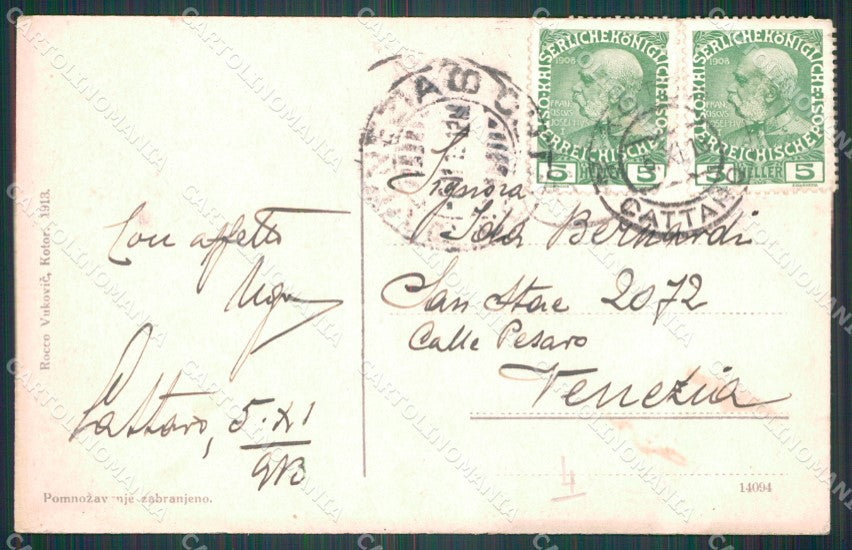 Rocco Vuković, Kotor, 1913.
Con affetto
Cattaro, 5·XI
913
Pomnožavanje zabranjeno.
Signora
Ida Bernardi
San Stae 2072
Calle Pesaro
Venezia
4
14094
KAISERLICHE KÖNIGLICHE
ÖSTERREICHISCHE POST
1908
FRANCISCUS JOSEPH I
5 HELLER 5
KAISERLICHE KÖNIGLICHE
ÖSTERREICHISCHE POST
1908
FRANCISCUS JOSEPH I
5 HELLER 5
CATTARO
VENEZIA
CARTOLINOMANIA